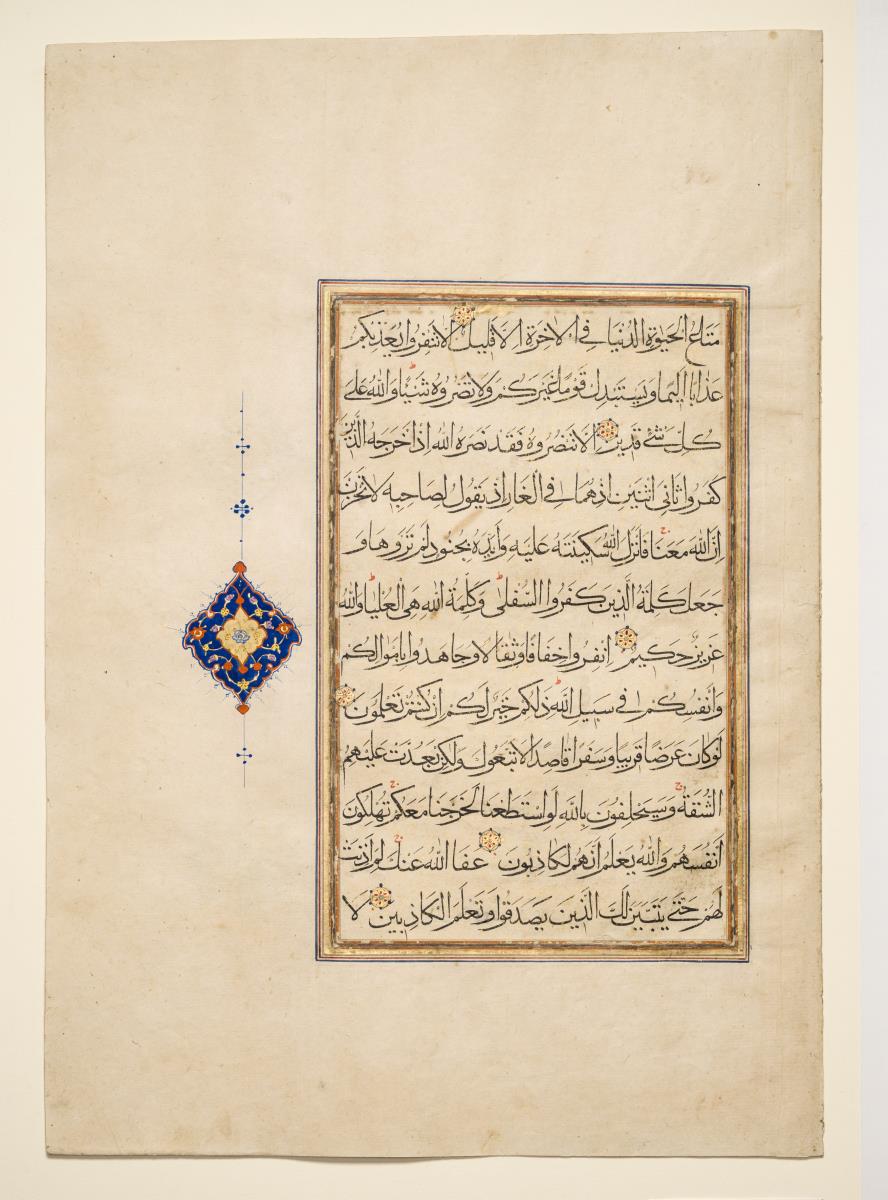 متاع الحيوة الدنيا في الاخرة الا قليل الا تنفروا يعذبكم
عذابا اليما ويستبدل قوما غيركم ولا تضروه شيئا والله على
كل شئ قدير الا تنصروه فقد نصره الله اذ اخرجه الذين
كفروا ثاني اثنين اذ هما في الغار اذ يقول لصاحبه لا تحزن
ان الله معنا فانزل الله سكينته عليه وايده بجنود لم تروها و
جعل كلمة الذين كفروا السفلى وكلمة الله هي العليا والله
عزيز حكيم انفروا خفافا وثقالا وجاهدوا باموالكم
وانفسكم في سبيل الله ذلكم خير لكم ان كنتم تعلمون
لو كان عرضا قريبا وسفرا قاصدا لاتبعوك ولكن بعدت عليهم
الشقة وسيحلفون بالله لو استطعنا لخرجنا معكم يهلكون
انفسهم والله يعلم انهم لكاذبون عفا الله عنك لم اذنت
لهم حتى يتبين لك الذين صدقوا وتعلم الكاذبين لا